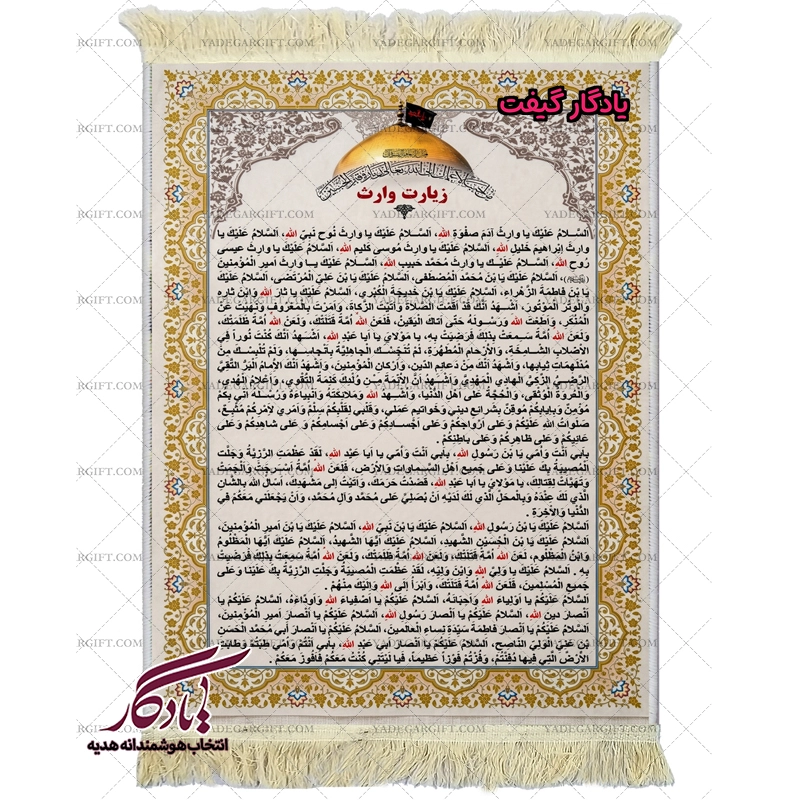 یادگار گیفت
زیارت وارث
اَلسَّلامُ عَلَیْکَ یا وارِثَ آدَمَ صِفْوَةِ اللهِ، اَلسَّلامُ عَلَیْکَ یا وارِثَ نُوحٍ نَبِیِّ اللهِ، اَلسَّلامُ عَلَیْکَ یا
وارِثَ اِبْراهیمَ خَلیلِ اللهِ، اَلسَّلامُ عَلَیْکَ یا وارِثَ مُوسی کَلیمِ اللهِ، اَلسَّلامُ عَلَیْکَ یا وارِثَ عیسی
رُوحِ اللهِ، اَلسَّلامُ عَلَیْکَ یا وارِثَ مُحَمَّدٍ حَبیبِ اللهِ، اَلسَّلامُ عَلَیْکَ یا وارِثَ اَمیرِ الْمُؤْمِنینَ
، اَلسَّلامُ عَلَیْکَ یَا بْنَ مُحَمَّدٍ الْمُصْطَفی، اَلسَّلامُ عَلَیْکَ یَا بْنَ عَلِیٍّ الْمُرْتَضی، اَلسَّلامُ عَلَیْکَ
یَا بْنَ فاطِمَةَ الزَّهْراءِ، اَلسَّلامُ عَلَیْکَ یَا بْنَ خَدیجَةَ الْکُبْری، اَلسَّلامُ عَلَیْکَ یا ثارَ اللهِ وَابْنَ ثارِهِ
وَالْوِتْرَ الْمَوْتُورَ، اَشْهَدُ اَنَّکَ قَدْ اَقَمْتَ الصَّلاةَ وَآتَیْتَ الزَّکاةَ، وَاَمَرْتَ بِالْمَعْرُوفِ وَنَهَیْتَ عَنِ
الْمُنْکَرِ، وَاَطَعْتَ اللهَ وَرَسُولَهُ حَتّی اَتاکَ الْیَقینُ، فَلَعَنَ اللهُ اُمَّةً قَتَلَتْکَ، وَلَعَنَ اللهُ اُمَّةً ظَلَمَتْکَ،
وَلَعَنَ اللهُ اُمَّةً سَمِعَتْ بِذلِکَ فَرَضِیَتْ بِهِ، یا مَوْلایَ یا اَبا عَبْدِ اللهِ، اَشْهَدُ اَنَّکَ کُنْتَ نُوراً فِی
الْاَصْلابِ الشّامِخَةِ، وَالْاَرْحامِ الْمُطَهَّرَةِ، لَمْ تُنَجِّسْکَ الْجاهِلِیَّةُ بِاَنْجاسِها، وَلَمْ تُلْبِسْکَ مِنْ
مُدْلَهِمّاتِ ثِیابِها، وَاَشْهَدُ اَنَّکَ مِنْ دَعائِمِ الدّینِ، وَاَرْکانِ الْمُؤْمِنینَ، وَاَشْهَدُ اَنَّکَ الْاِمامُ الْبَرُّ التَّقِیُّ
الرَّضِیُّ الزَّکِیُّ الْهادِی الْمَهْدِیُّ، وَاَشْهَدُ اَنَّ الْاَئِمَّةَ مِنْ وُلْدِکَ کَلِمَةُ التَّقْوی، وَاَعْلامُ الْهُدی،
وَالْعُرْوَةُ الْوُثْقی، وَالْحُجَّةُ عَلی اَهْلِ الدُّنْیا، وَاُشْهِدُ اللهَ وَمَلائِکَتَهُ وَاَنْبِیاءَهُ وَرُسُلَهُ اَنّی بِکُمْ
مُؤْمِنٌ وَبِاِیابِکُمْ مُوقِنٌ بِشَرائِعِ دینی وَخَواتیمِ عَمَلی، وَقَلْبی لِقَلْبِکُمْ سِلْمٌ وَاَمْری لِاَمْرِکُمْ مُتَّبِعٌ،
صَلَواتُ اللهِ عَلَیْکُمْ وَعَلی اَرْواحِکُمْ وَعَلی اَجْسادِکُمْ وَعَلی اَجْسامِکُمْ وَعَلی شاهِدِکُمْ وَعَلی
غائِبِکُمْ وَعَلی ظاهِرِکُمْ وَعَلی باطِنِکُمْ .
بِاَبی اَنْتَ وَاُمّی یَا بْنَ رَسُولِ اللهِ، بِاَبی اَنْتَ وَاُمّی یا اَبا عَبْدِ اللهِ، لَقَدْ عَظُمَتِ الرَّزِیَّةُ وَجَلَّتِ
الْمُصیبَةُ بِکَ عَلَیْنا وَعَلی جَمیعِ اَهْلِ السَّماواتِ وَالْاَرْضِ، فَلَعَنَ اللهُ اُمَّةً اَسْرَجَتْ وَاَلْجَمَتْ
وَتَهَیَّأَتْ لِقِتالِکَ، یا مَوْلایَ یا اَبا عَبْدِ اللهِ، قَصَدْتُ حَرَمَکَ، وَاَتَیْتُ اِلی مَشْهَدِکَ، اَسْاَلُ اللهَ بِالشَّأْنِ
الَّذی لَکَ عِنْدَهُ وَبِالْمَحَلِّ الَّذی لَکَ لَدَیْهِ اَنْ یُصَلِّیَ عَلی مُحَمَّدٍ وَآلِ مُحَمَّدٍ، وَاَنْ یَجْعَلَنی مَعَکُمْ فِی
الدُّنْیا وَالْآخِرَةِ .
اَلسَّلامُ عَلَیْکَ یَا بْنَ رَسُولِ اللهِ، اَلسَّلامُ عَلَیْکَ یَا بْنَ نَبِیِّ اللهِ، اَلسَّلامُ عَلَیْکَ یَا بْنَ اَمیرِ الْمُؤْمِنینَ،
اَلسَّلامُ عَلَیْکَ یَا بْنَ الْحُسَیْنِ الشَّهیدِ، اَلسَّلامُ عَلَیْکَ اَیُّهَا الشَّهیدُ، اَلسَّلامُ عَلَیْکَ اَیُّهَا الْمَظْلُومُ
وَابْنُ الْمَظْلُومِ، لَعَنَ اللهُ اُمَّةً قَتَلَتْکَ، وَلَعَنَ اللهُ اُمَّةً ظَلَمَتْکَ، وَلَعَنَ اللهُ اُمَّةً سَمِعَتْ بِذلِکَ فَرَضِیَتْ
بِهِ . اَلسَّلامُ عَلَیْکَ یا وَلِیَّ اللهِ وَابْنَ وَلِیِّهِ، لَقَدْ عَظُمَتِ الْمُصیبَةُ وَجَلَّتِ الرَّزِیَّةُ بِکَ عَلَیْنا وَعَلی
جَمیعِ الْمُسْلِمینَ، فَلَعَنَ اللهُ اُمَّةً قَتَلَتْکَ، وَاَبْرَأُ اِلَی اللهِ وَاِلَیْکَ مِنْهُمْ .
اَلسَّلامُ عَلَیْکُمْ یا اَوْلِیاءَ اللهِ وَاَحِبّائَهُ، اَلسَّلامُ عَلَیْکُمْ یا اَصْفِیاءَ اللهِ وَاَوِدّاءَهُ، اَلسَّلامُ عَلَیْکُمْ یا
اَنْصارَ دینِ اللهِ، اَلسَّلامُ عَلَیْکُمْ یا اَنْصارَ رَسُولِ اللهِ، اَلسَّلامُ عَلَیْکُمْ یا اَنْصارَ اَمیرِ الْمُؤْمِنینَ،
اَلسَّلامُ عَلَیْکُمْ یا اَنْصارَ فاطِمَةَ سَیِّدَةِ نِساءِ الْعالَمینَ، اَلسَّلامُ عَلَیْکُمْ یا اَنْصارَ اَبی مُحَمَّدٍ الْحَسَنِ
بْنِ عَلِیٍّ الْوَلِیِّ النّاصِحِ، اَلسَّلامُ عَلَیْکُمْ یا اَنْصارَ اَبی عَبْدِ اللهِ، بِاَبی اَنْتُمْ وَاُمّی طِبْتُمْ وَطابَتِ
الْاَرْضُ الَّتی فیها دُفِنْتُمْ، وَفُزْتُمْ فَوْزاً عَظیماً، فَیا لَیْتَنی کُنْتُ مَعَکُمْ فَاَفُوزَ مَعَکُمْ .
یادگار
انتخاب هوشمندانه هدیه
YADEGARGIFT.COM